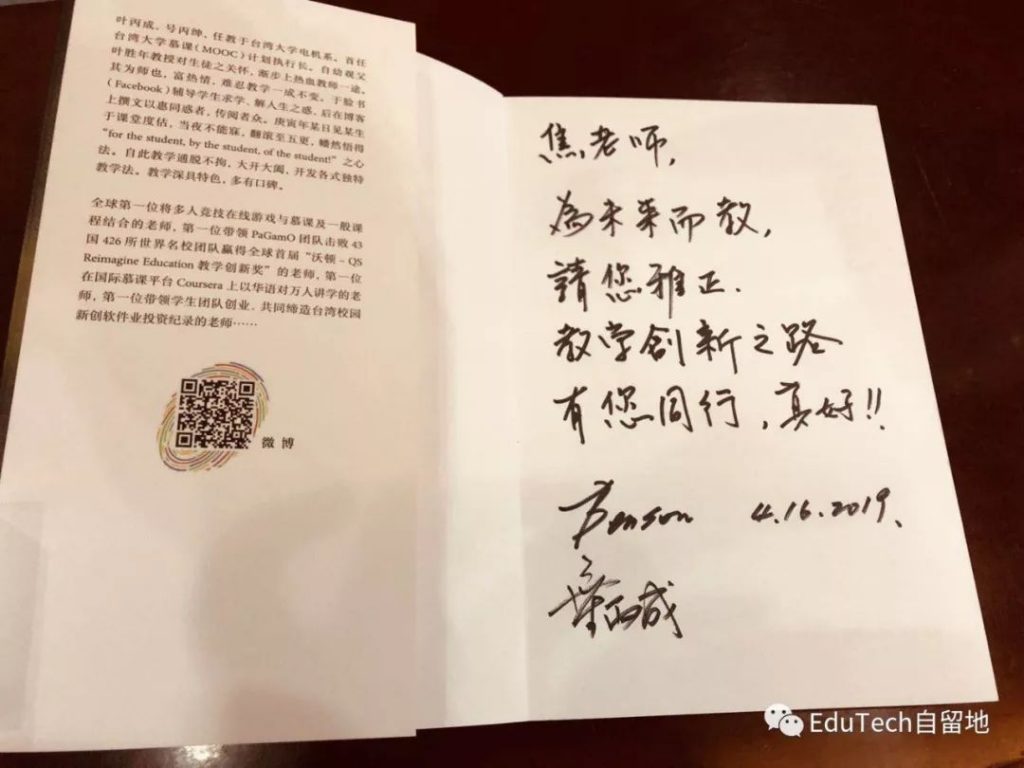 叶丙成，号丙绅，任教于台湾大学电机系。首任
台湾大学慕课（MOOC）计划执行长。自幼观父
叶胜年教授对生徒之关怀，渐步上热血教师一途。
其为师也，富热情，难忍教学一成不变。于脸书
（Facebook）辅导学生求学、解人生之惑，后在博客
上撰文以惠同惑者，传阅者众。庚寅年某日见某生
于课堂度估，当夜不能寐，翻滚至五更，蟠然悟得
“for the student, by the student, of the student!”之心
法。自此教学通脱不拘，大开大阖，开发各式独特
教学法。教学深具特色，多有口碑。
全球第一位将多人竞技在线游戏与慕课及一般课
程结合的老师，第一位带领 PaGamO 团队击败 43
国 426 所世界名校团队赢得全球首届“沃顿－QS
Reimagine Education 教学创新奖”的老师，第一位
在国际慕课平台 Coursera 上以华语对万人讲学的老
师，第一位带领学生团队创业、共同缔造台湾校园
新创软件业投资纪录的老师……
微博
焦老师,
為未来而教,
請您雅正.
教学創新之路
有您同行,真好!!
Benson 4.16.2019.
葉丙成
EduTech自留地